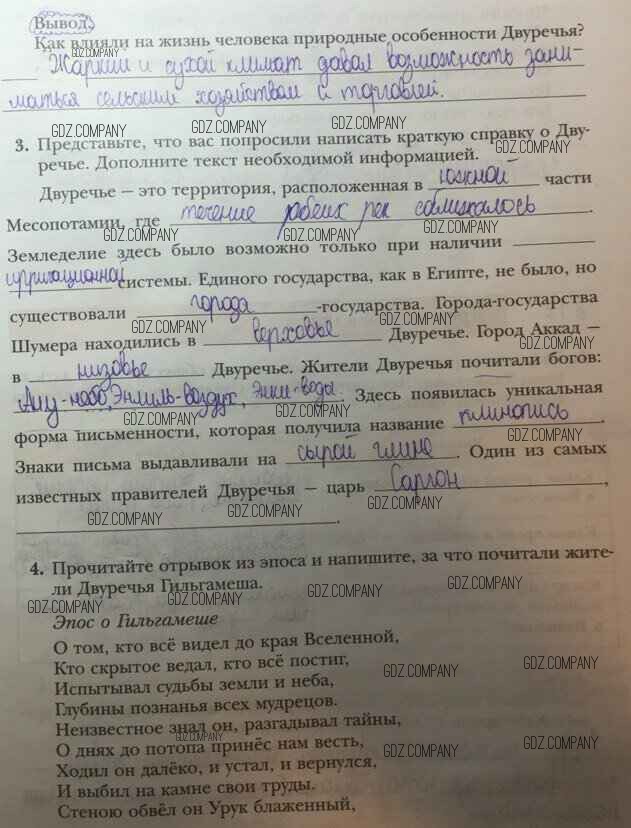 Вывод.
Как влияли на жизнь человека природные особенности Двуречья?
GDZ.COMPANY
Жаркий и сухой климат давал возможность зани-
маться сельским хозяйством и торговлей.
GDZ.COMPANY GDZ.COMPANY GDZ.COMPANY
3. Представьте, что вас попросили написать краткую справку о Дву-
речье. Дополните текст необходимой информацией. GDZ.COMPANY
Двуречье — это территория, расположенная в южной части
Месопотамии, где течение рабеих рек сближалось.
GDZ.COMPANY GDZ.COMPANY
Земледелие здесь было возможно только при наличии
ирригационной системы. Единого государства, как в Египте, не было, но
существовали города -государства. Города-государства
GDZ.COMPANY GDZ.COMPANY
Шумера находились в верховье Двуречье. Город Аккад —
GDZ.COMPANY
в низовье Двуречье. Жители Двуречья почитали богов:
Ану-небо, Энлиль-воздух, Энки-воды. Здесь появилась уникальная
GDZ.COMPANY GDZ.COMPANY
форма письменности, которая получила название клинопись.
GDZ.COMPANY
Знаки письма выдавливали на сырой глине. Один из самых
известных правителей Двуречья — царь Саргон,
GDZ.COMPANY GDZ.COMPANY GDZ.COMPANY
4. Прочитайте отрывок из эпоса и напишите, за что почитали жите-
ли Двуречья Гильгамеша.
GDZ.COMPANY GDZ.COMPANY GDZ.COMPANY GDZ.COMPANY
Эпос о Гильгамеше
О том, кто всё видел до края Вселенной,
Кто скрытое ведал, кто всё постиг,
GDZ.COMPANY GDZ.COMPANY
Испытывал судьбы земли и неба,
Глубины познанья всех мудрецов.
Неизвестное знал он, разгадывал тайны,
GDZ.COMPANY
О днях до потопа принёс нам весть,
GDZ.COMPANY GDZ.COMPANY
Ходил он далёко, и устал, и вернулся,
И выбил на камне свои труды.
Стеною обвёл он Урук блаженный,